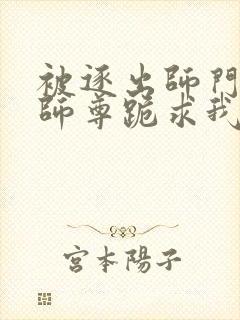 被逐出師門
師尊跪求我
宮本陽子